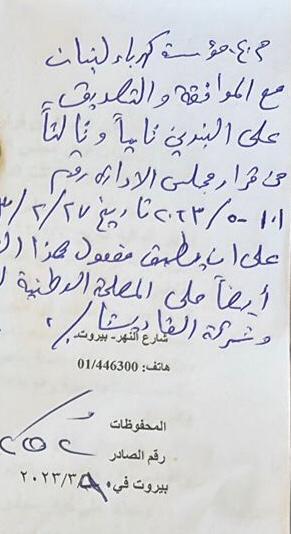 م.ع. مؤسسة كهرباء لبنان
مع الموافقة والتصديق
على البندين ثانياً وثالثاً
من قرار مجلس الادارة رقم
١٠١-٢٠٢٣/٥ تاريخ ٢٠٢٣/٢/٢٧
على ان يطبق مفعول هذا
أيضاً على المصلحة الوطنية
وشركة القاديشا.
شارع النهر- بيروت.
هاتف: 01/446300
المحفوظات
رقم الصادر
بيروت في ٢٠٢٣/٣/